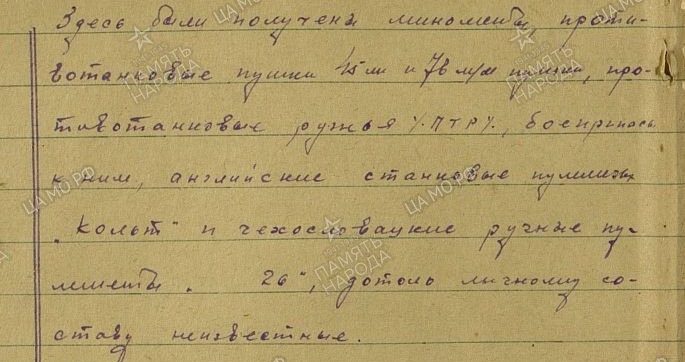 Здесь были получены минометы, проти-
вотанковые пушки 45 мм и 76 м/м пушки, про-
тивотанковые ружья /ПТР/, боеприпасы
к ним, английские станковые пулеметы
„Кольт" и чехословацкие ручные пу-
леметы „26", дотоль личному со-
ставу неизвестные.
ПАМЯТЬ НАРОДА
ЦАМО.РФ